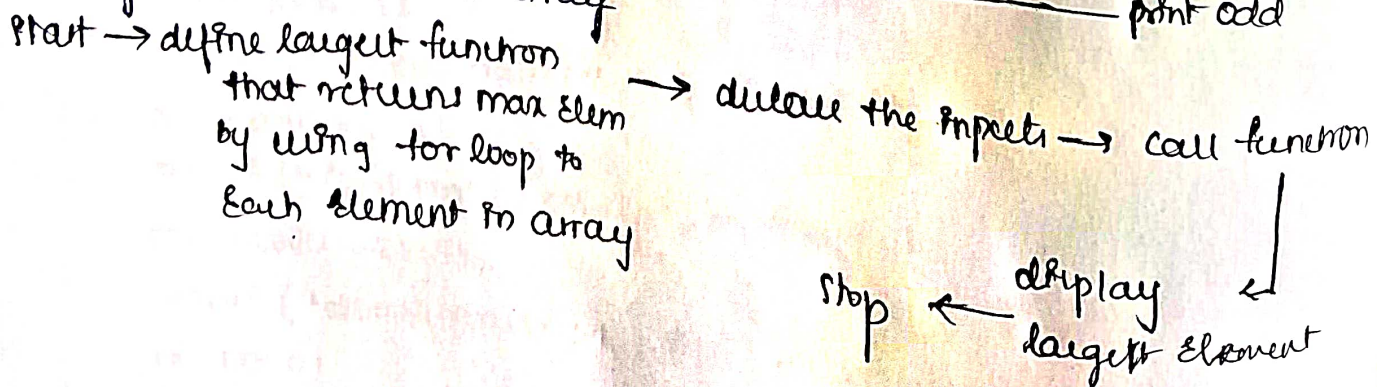 print odd
start → define largest function
that returns max elem
by using for loop to
Each element in array
→ declare the inputs → call function
display
largest element
← stop